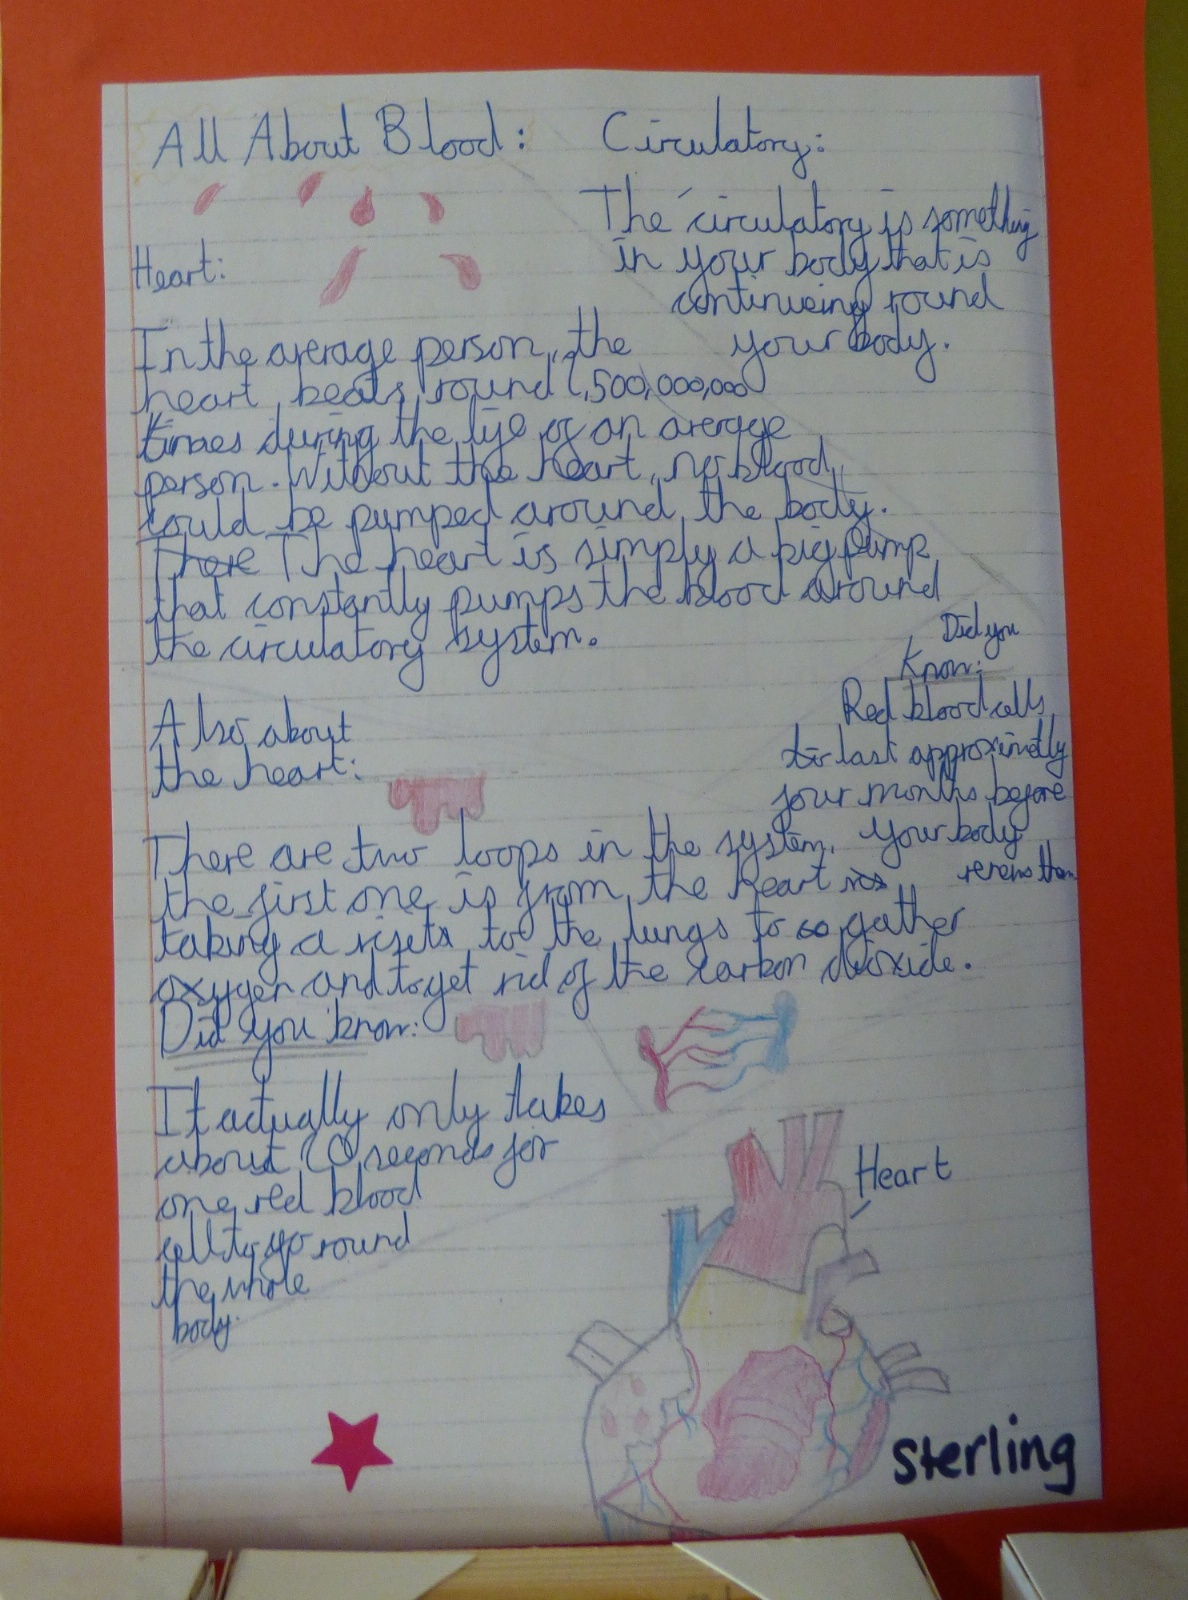 All About Blood:
Circulatory:
The circulatory is something
in your body that is
continueing round
your body.
Heart:
In the average person, the
heart beats round 2,500,000,000
times during the life of an average
person. Without the heart, no blood
could be pumped around the body.
There The heart is simply a big pump
that constantly pumps the blood around
the circulatory system.
Did you
Know:
Red blood cells
last approximetly
four months before
your body
renews them
Also about
the heart:
There are two loops in the system.
the first one is from the heart
taking a to the lungs to gather
oxygen and to get rid of the carbon dioxide.
Did you know:
It actually only takes
about seconds for
one red blood
cell to go round
the whole
body.
Heart
sterling